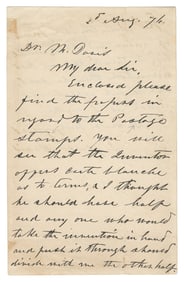 25 Aug. 76
Dr. M. Davis
My dear Sir,
Enclosed please
find the papers in
regard to the Postage
Stamps. You will
see that the Inventor
offers carte blanche
as to terms, & I thought
he should have half
and any one who would
take the invention in hand
and push it through should
divide with me the other half.